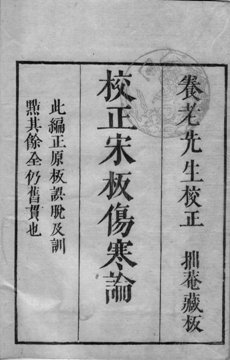 養老先生校正　拙菴藏板
校正宋板傷寒論
此編正原板誤脫及訓
點其餘全仍舊貫也